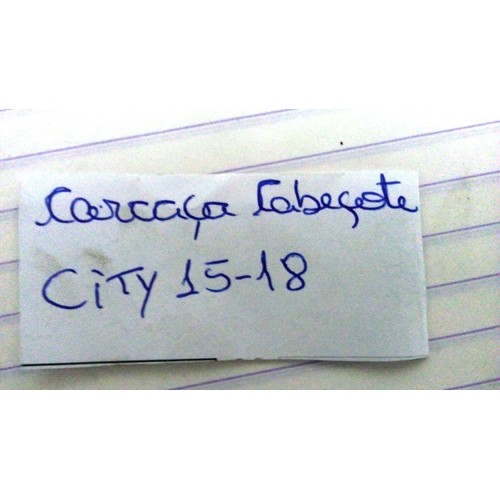 Carcaça Cabeçote
City 15-18